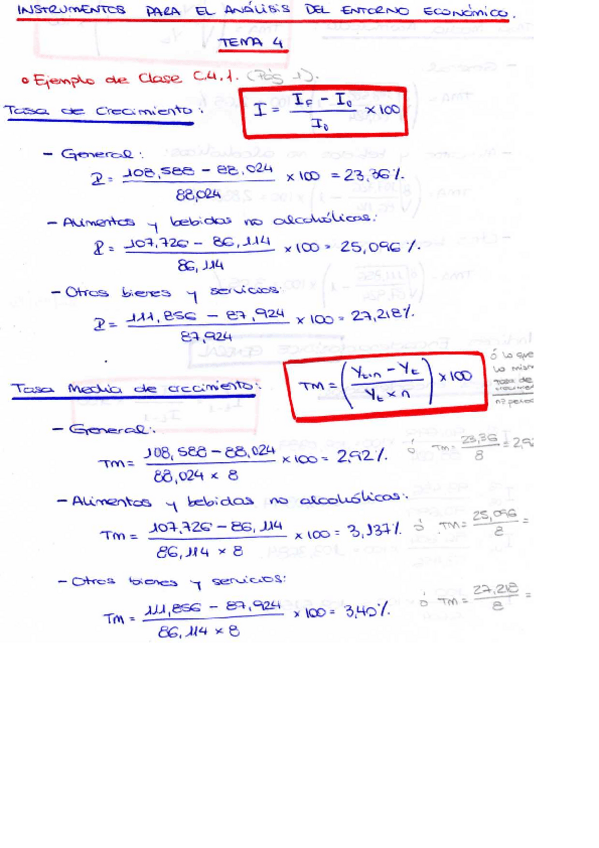 INSTRUMENTOS PARA EL ANÁLISIS DEL ENTORNO ECONÓMICO.
TEMA 4
o Ejemplo de Clase C.4.1. (Pág 1).
Tasa de Crecimiento: I = (I_F - I_0) / I_0 x 100
- General:
I = (108,588 - 88,024) / 88,024 x 100 = 23,36 %
- Alimentos y bebidas no alcohólicas:
I = (107,726 - 86,114) / 86,114 x 100 = 25,096 %.
- Otros bienes y servicios:
I = (111,856 - 87,924) / 87,924 x 100 = 27,218%.
Tasa Media de crecimiento: TM = ((Y_t+n - Y_t) / (Y_t x n)) x 100 ó lo que
la
tasa de
- General:
TM = (108,588 - 88,024) / (88,024 x 8) x 100 = 2,92%. ó TM = 23,36 / 8 = 2,9
- Alimentos y bebidas no alcohólicas:
TM = (107,726 - 86,114) / (86,114 x 8) x 100 = 3,137%. ó TM = 25,096 / 8 =
- Otros bienes y servicios:
TM = (111,856 - 87,924) / (86,114 x 8) x 100 = 3,40%. ó TM = 27,218 / 8 =